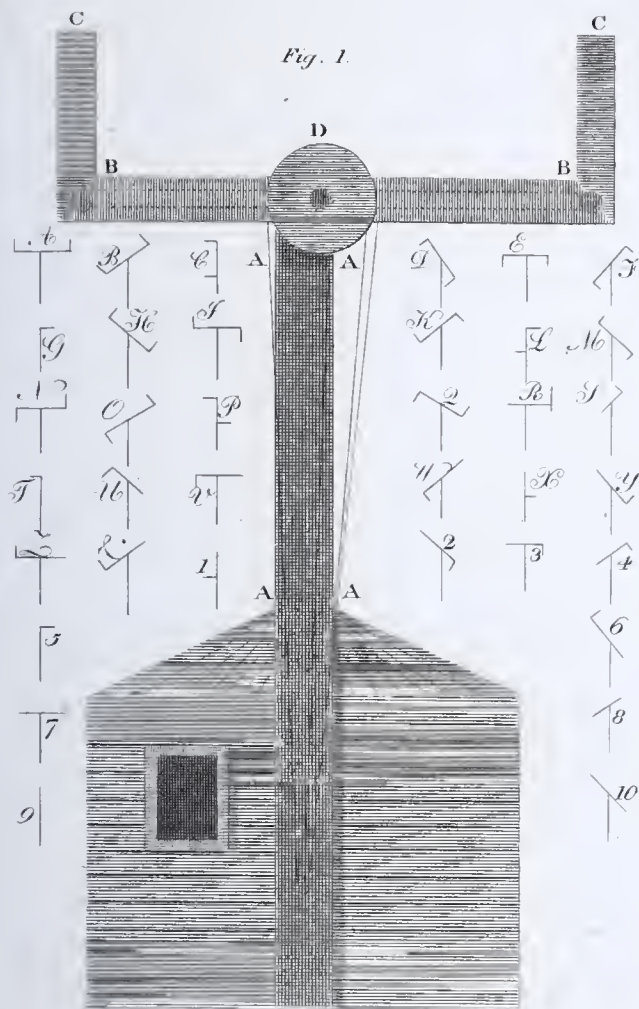 C C
Fig. 1.
D
B B
A B C A A D E F
G H I K L M
N O P Q R S
T U V W X Y
Z & 1 2 3 4
A A
5 6
7 8
9 10